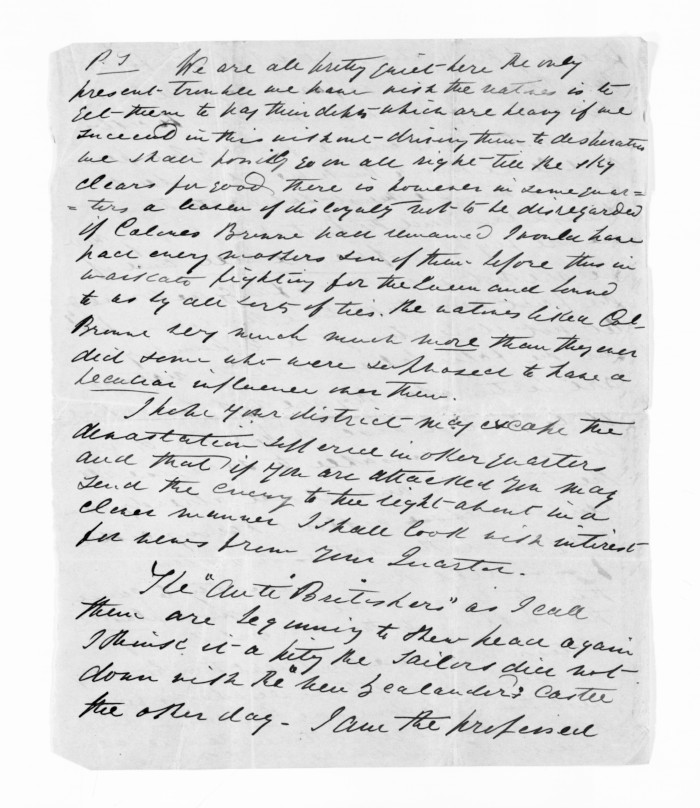 P.S We are all pretty quiet here the only
present trouble we have with the natives is to
get them to pay their debts which are heavy if we
succeed in this without driving them to desperation
we shall possibly go on all right till the sky
clears for good, there is however in some quar=
=ters a leaven of disloyalty not to be disregarded
if Colonel Browne had remained I would have
had every mothers son of them before this in
Waikato fighting for the Queen and bound
to us by all sorts of ties. The natives liked Col-
Browne very much much more than they ever
did some who were supposed to have a
peculiar influence over them.
I hope your district may escape the
devastation suffered in other quarters
and that if you are attacked you may
send the enemy to the right about in a
clever manner I shall look with interest
for news from your Quarter.
The "Anti Britishers" as I call
them are beginning to shew head again
I think it a pity the sailors did not
down with the "New Zealander's Castle
the other day - I am the professed